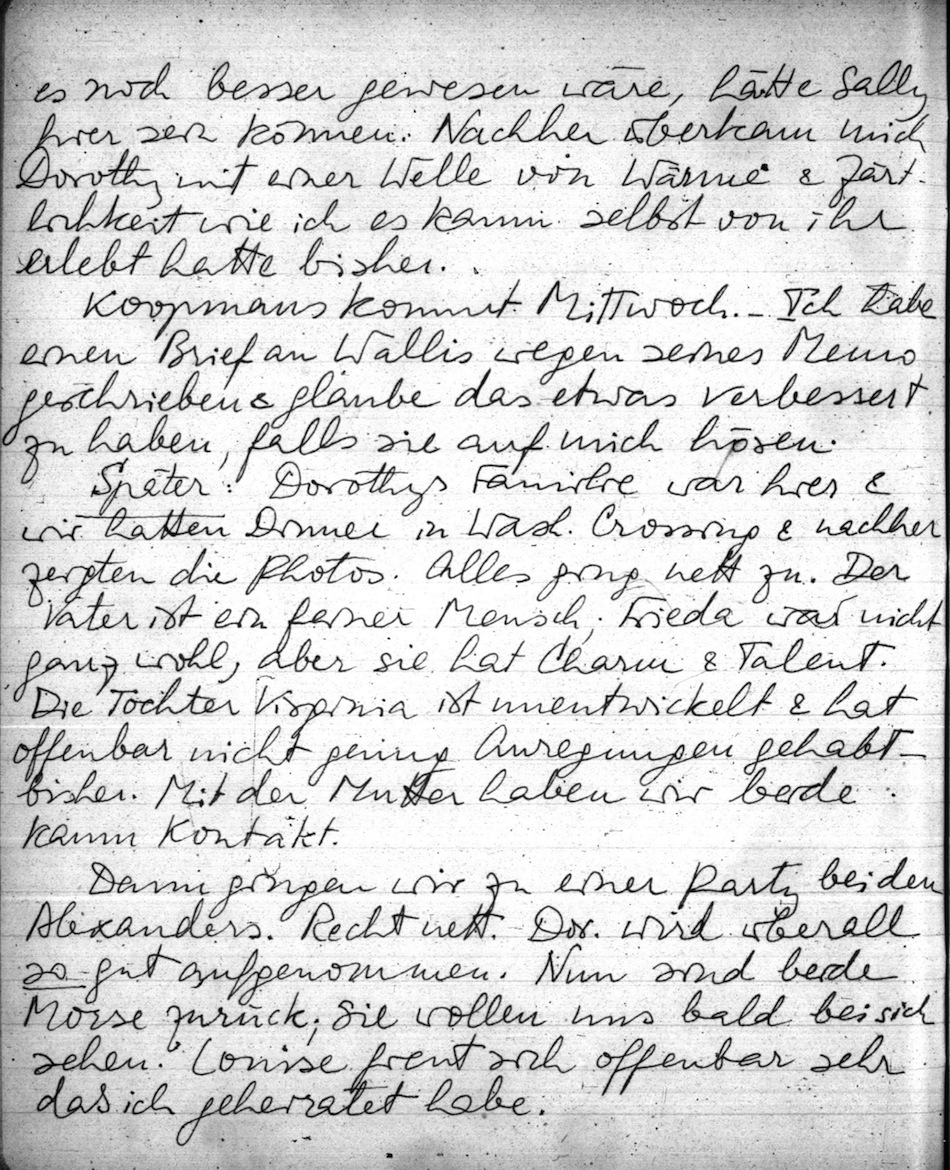 es noch besser gewesen wäre, hätte Sally
hier sein können. Nachher überkam mich
Dorothy mit einer Welle von Wärme & Zärt-
lichkeit wie ich es kaum selbst von ihr
erlebt hatte bisher.
Koopmans kommt Mittwoch. – Ich habe
einen Brief an Wallis wegen seines Memo
geschrieben & glaube das etwas verbessert
zu haben, falls sie auf mich hören.
Später: Dorothys Familie war hier &
wir hatten Dinner in Wash. Crossing & nachher
zeigten die Photos. Alles ging nett zu. Der
Vater ist ein feiner Mensch; Frieda war nicht
ganz wohl, aber sie hat Charm & Talent.
Die Tochter Virginia ist unentwickelt & hat
offenbar nicht genug Anregungen gehabt –
bisher. Mit der Mutter haben wir beide
kaum Kontakt.
Dann gingen wir zu einer Party bei den
Alexanders. Recht nett. Dor. wird überall
so gut aufgenommen. Nun sind beide
Morse zurück; sie wollen uns bald bei sich
sehen. Louise freut sich offenbar sehr
das ich geheiratet habe.